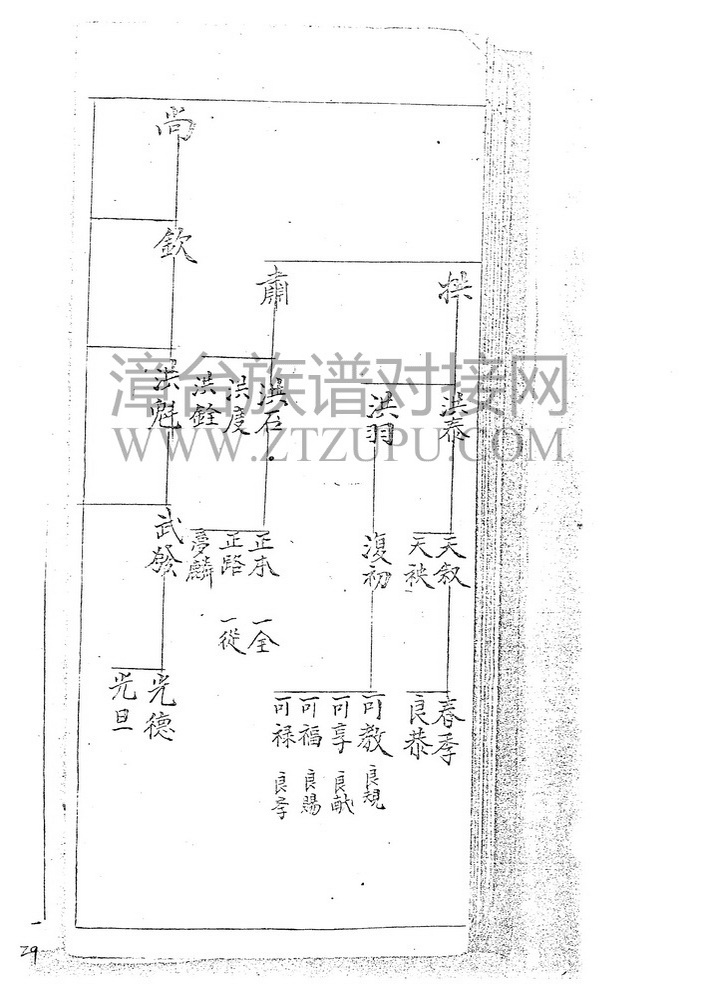 拱
洪泰
天叙
天秧
春季
良恭
洪羽
復初
可教 良規
可享 良猷
可福 良賜
可禄 良孝
肅
洪石
洪度
洪銓
正本 一全
正路 一從
夢麟
尚
欽
洪魁
武發
光德
光旦
漳台族谱对接网
WWW.ZTZUPU.COM
29